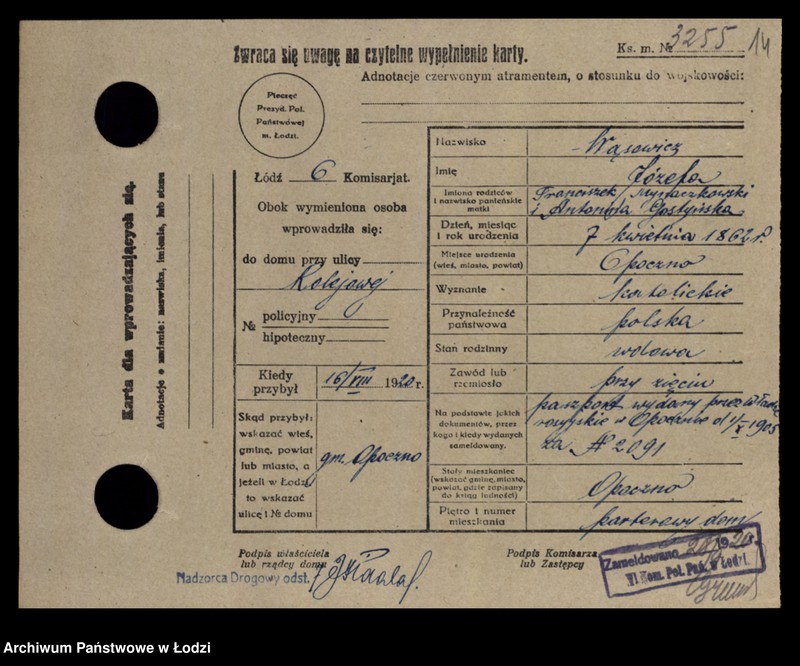 Zwraca się uwagę na czytelne wypełnienie karty.
Ks. m. № 3255
14
Adnotacje czerwonym atramentem, o stosunku do wojskowości:
Pieczęć
Prezyd. Pol.
Państwowej
m. Łodzi.
Karta dla wprowadzających się.
Adnotacje o zmianie: nazwiska, imienia, lub stanu
Łódź 6 Komisarjat.
Obok wymieniona osoba
wprowadziła się:
do domu przy ulicy
Kolejowej
№ policyjny
hipoteczny
Kiedy przybył 16/VIII 1920 r.
Skąd przybył:
wskazać wieś,
gminę, powiat
lub miasto, a
jeżeli w Łodzi
to wskazać
ulicę i № domu
gm. Opoczno
Nazwisko Wąsowicz
Imię Józefa
Imiona rodziców
i nazwisko panieńskie
matki
Franciszek
i Antonina Gostyńska
Dzień, miesiąc
i rok urodzenia
7 kwietnia 1862 r.
Miejsce urodzenia
(wieś, miasto, powiat)
Opoczno
Wyznanie katolickie
Przynależność
państwowa
polska
Stan rodzinny wdowa
Zawód lub
rzemiosło
przy zięciu
Na podstawie jakich
dokumentów, przez
kogo i kiedy wydanych
zameldowany.
paszport wydany przez Władze
rosyjskie w Opocznie d 1/X 1905
za № 2091
Stały mieszkaniec
(wskazać gminę, miasto,
powiat, gdzie zapisany
do ksiąg ludności)
Opoczno
Piętro i numer
mieszkania
parterowy dom
Podpis właściciela
lub rządcy domu
Nadzorca Drogowy odst. 7
Podpis Komisarza
lub Zastępcy
Zameldowano 1920 r.
VI Kom. Pol. Pań. w Łodzi.
Archiwum Państwowe w Łodzi